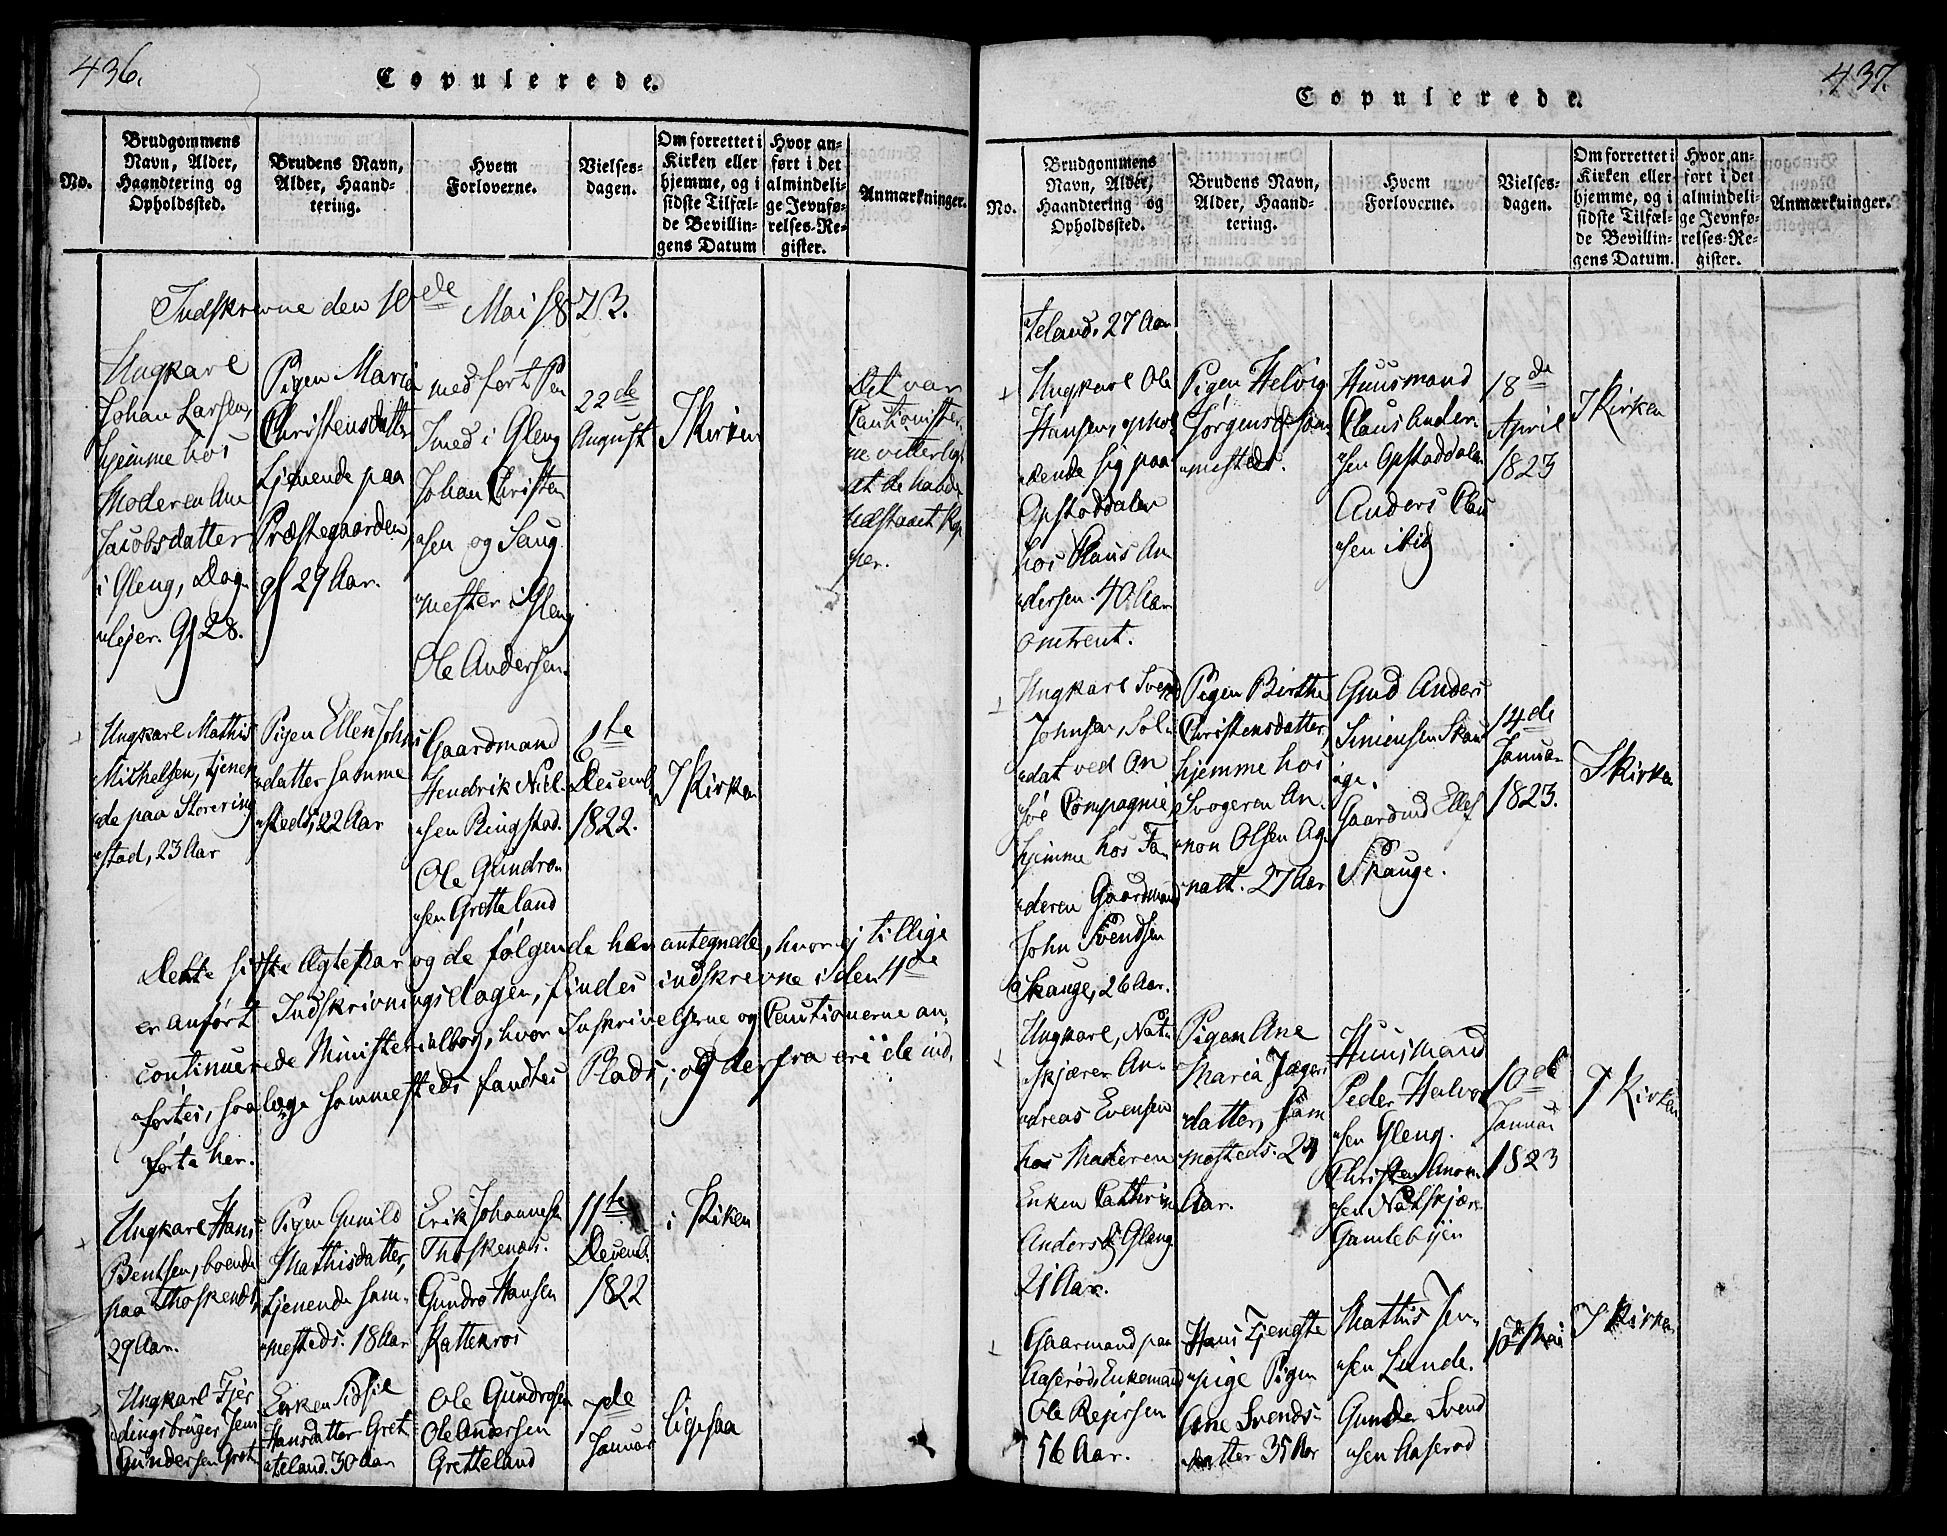 436.
Copulerede.
No.
Brudgommens
Navn, Alder,
Haandtering og
Opholdssted.
Brudens Navn,
Alder, Haand-
tering.
Hvem
Forloverne.
Vielses-
dagen.
Om forrettet i
Kirken eller
hjemme, og i
sidste Tilfæl-
de Bevillin-
gens Datum
Hvor an-
ført i det
almindeli-
ge Jevnfø-
relses-Re-
gister.
Anmærkninger.
Indskrevne den 10de Mai 1823.
Ungkarl
Johan Larsen,
hjemme hos
Moderen Ane
Jacobsdatter
i Gleng, Dag-
lejer. gl 28.
Pigen Maria
Christensdatter
tjenende paa
Præstegaarden,
gl 29 Aar.
med ført Pen
Smed i Gleng
Johan Christen
sen og Saug
mester i Gleng
Ole Andersen.
22de
August
I Kirken
Det var
Cautionister-
ne vitterligt
at de havde
udstaaet Kop-
per.
Ungkarl Mathis
Mikkelsen, tjenen
de paa Storering
stad, 23 Aar
Pigen Ellen Johns
datter samme
steds, 22 Aar
Gaardmand
Hendrik Niel-
sen Ringstad.
Ole Gundro
sen Gretteland
1te
Decemb.
1822.
I Kirken
Dette sidste Ægtepar og de følgende her antegnede, hvor ej tillige
er anført Indskrivningsdagen, findes indskrevne i den 4de
continuerede Ministerialbog, hvor Inskrivelserne og Cautionerne an-
førtes, saalænge sammesteds fandtes Plads, og derfra ere de ind-
førte her.
Ungkarl Hans
Bentsen, boende
paa Thoskenæs,
29 Aar.
Pigen Gunild
Mathisdatter,
tjenende sam-
mesteds. 18 Aar
Erik Johannesen
Thoskenæs.
Gundro Hansen
Kattenros
11te
Decemb.
1822
i Kirken
Ungkarl Fjer
dingsbruger Jens
Gundersen Gret-
Enken Sidsil
Hansdatter Gret
teland. 30 Aar
Ole Gundrosen
Ole Andersen
Gretteland
7de
Januar
ligesaa
437.
Copulerede.
No.
Brudgommens
Navn, Alder,
Haandtering og
Opholdssted.
Brudens Navn,
Alder, Haand-
tering.
Hvem
Forloverne.
Vielses-
dagen.
Om forrettet i
Kirken eller
hjemme, og i
sidste Tilfæl-
de Bevillin-
gens Datum.
Hvor an-
ført i det
almindeli-
ge Jevnfø-
relses-Re-
gister.
Anmærkninger.
teland. 27 Aar
Ungkarl Ole
Hansen, ophol
dende sig paa
Opstaddalen
hos Claus An
dersen. 40 Aar
omtrent.
Pigen Helvig
Jørgensd. sam-
mesteds.
Huusmand
Claus Ander-
sen Opstaddalen
Anders Clau
sen ibid
18de
April
1823
I Kirken
Ungkarl Svend
Johnsen Sol-
dat ved
Compagnie,
hjemme hos Fa
deren Gaardmand
John Svendsen
Skauge, 26 Aar.
Pigen Birthe
Christensdatter,
hjemme hos
Svogeren An-
non Olsen Ag-
nalt. 27 Aar
Gmd Anders
Simensen Skau
ge.
Gaardmd Ellef
Skauge.
14de
Januar
1823.
I Kirken
Ungkarl, Nat-
skjærer An-
dreas Evensen
hos Moderen
Enken Cathrine
Andersd Gleng
21 Aar.
Pigen Ane
Maria Jægers
datter, sam
mesteds. 24
Aar.
Huusmand
Peder Halvor
sen Gleng.
Christen Anon-
sen Natskjær
Gamlebyen
10de
Januar
1823
I Kirken
Gaarmand paa
Aaserød, Enkemand
Ole Rejersen
56 Aar.
Hans Tjeneste
pige Pigen
Ane Svends-
datter 35 Aar
Mathis Jen-
sen Lunde.
Gunder Svend
sen Aaserød
10de Mai
I Kirken